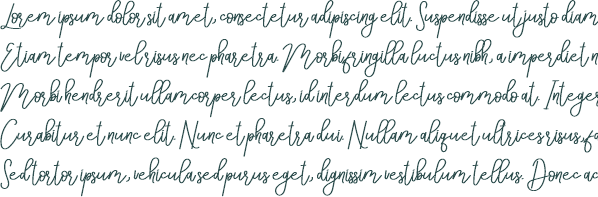 Lorem ipsum dolor sit amet, consectetur adipiscing elit. Suspendisse ut justo diam
Etiam tempor vel risus nec pharetra. Morbi fringilla luctus nibh, a imperdiet n
Morbi hendrerit ullamcorper lectus, id interdum lectus commodo at. Integer
Curabitur et nunc elit. Nunc et pharetra dui. Nullam aliquet ultrices risus, fa
Sed tortor ipsum, vehicula sed purus eget, dignissim vestibulum tellus. Donec ac